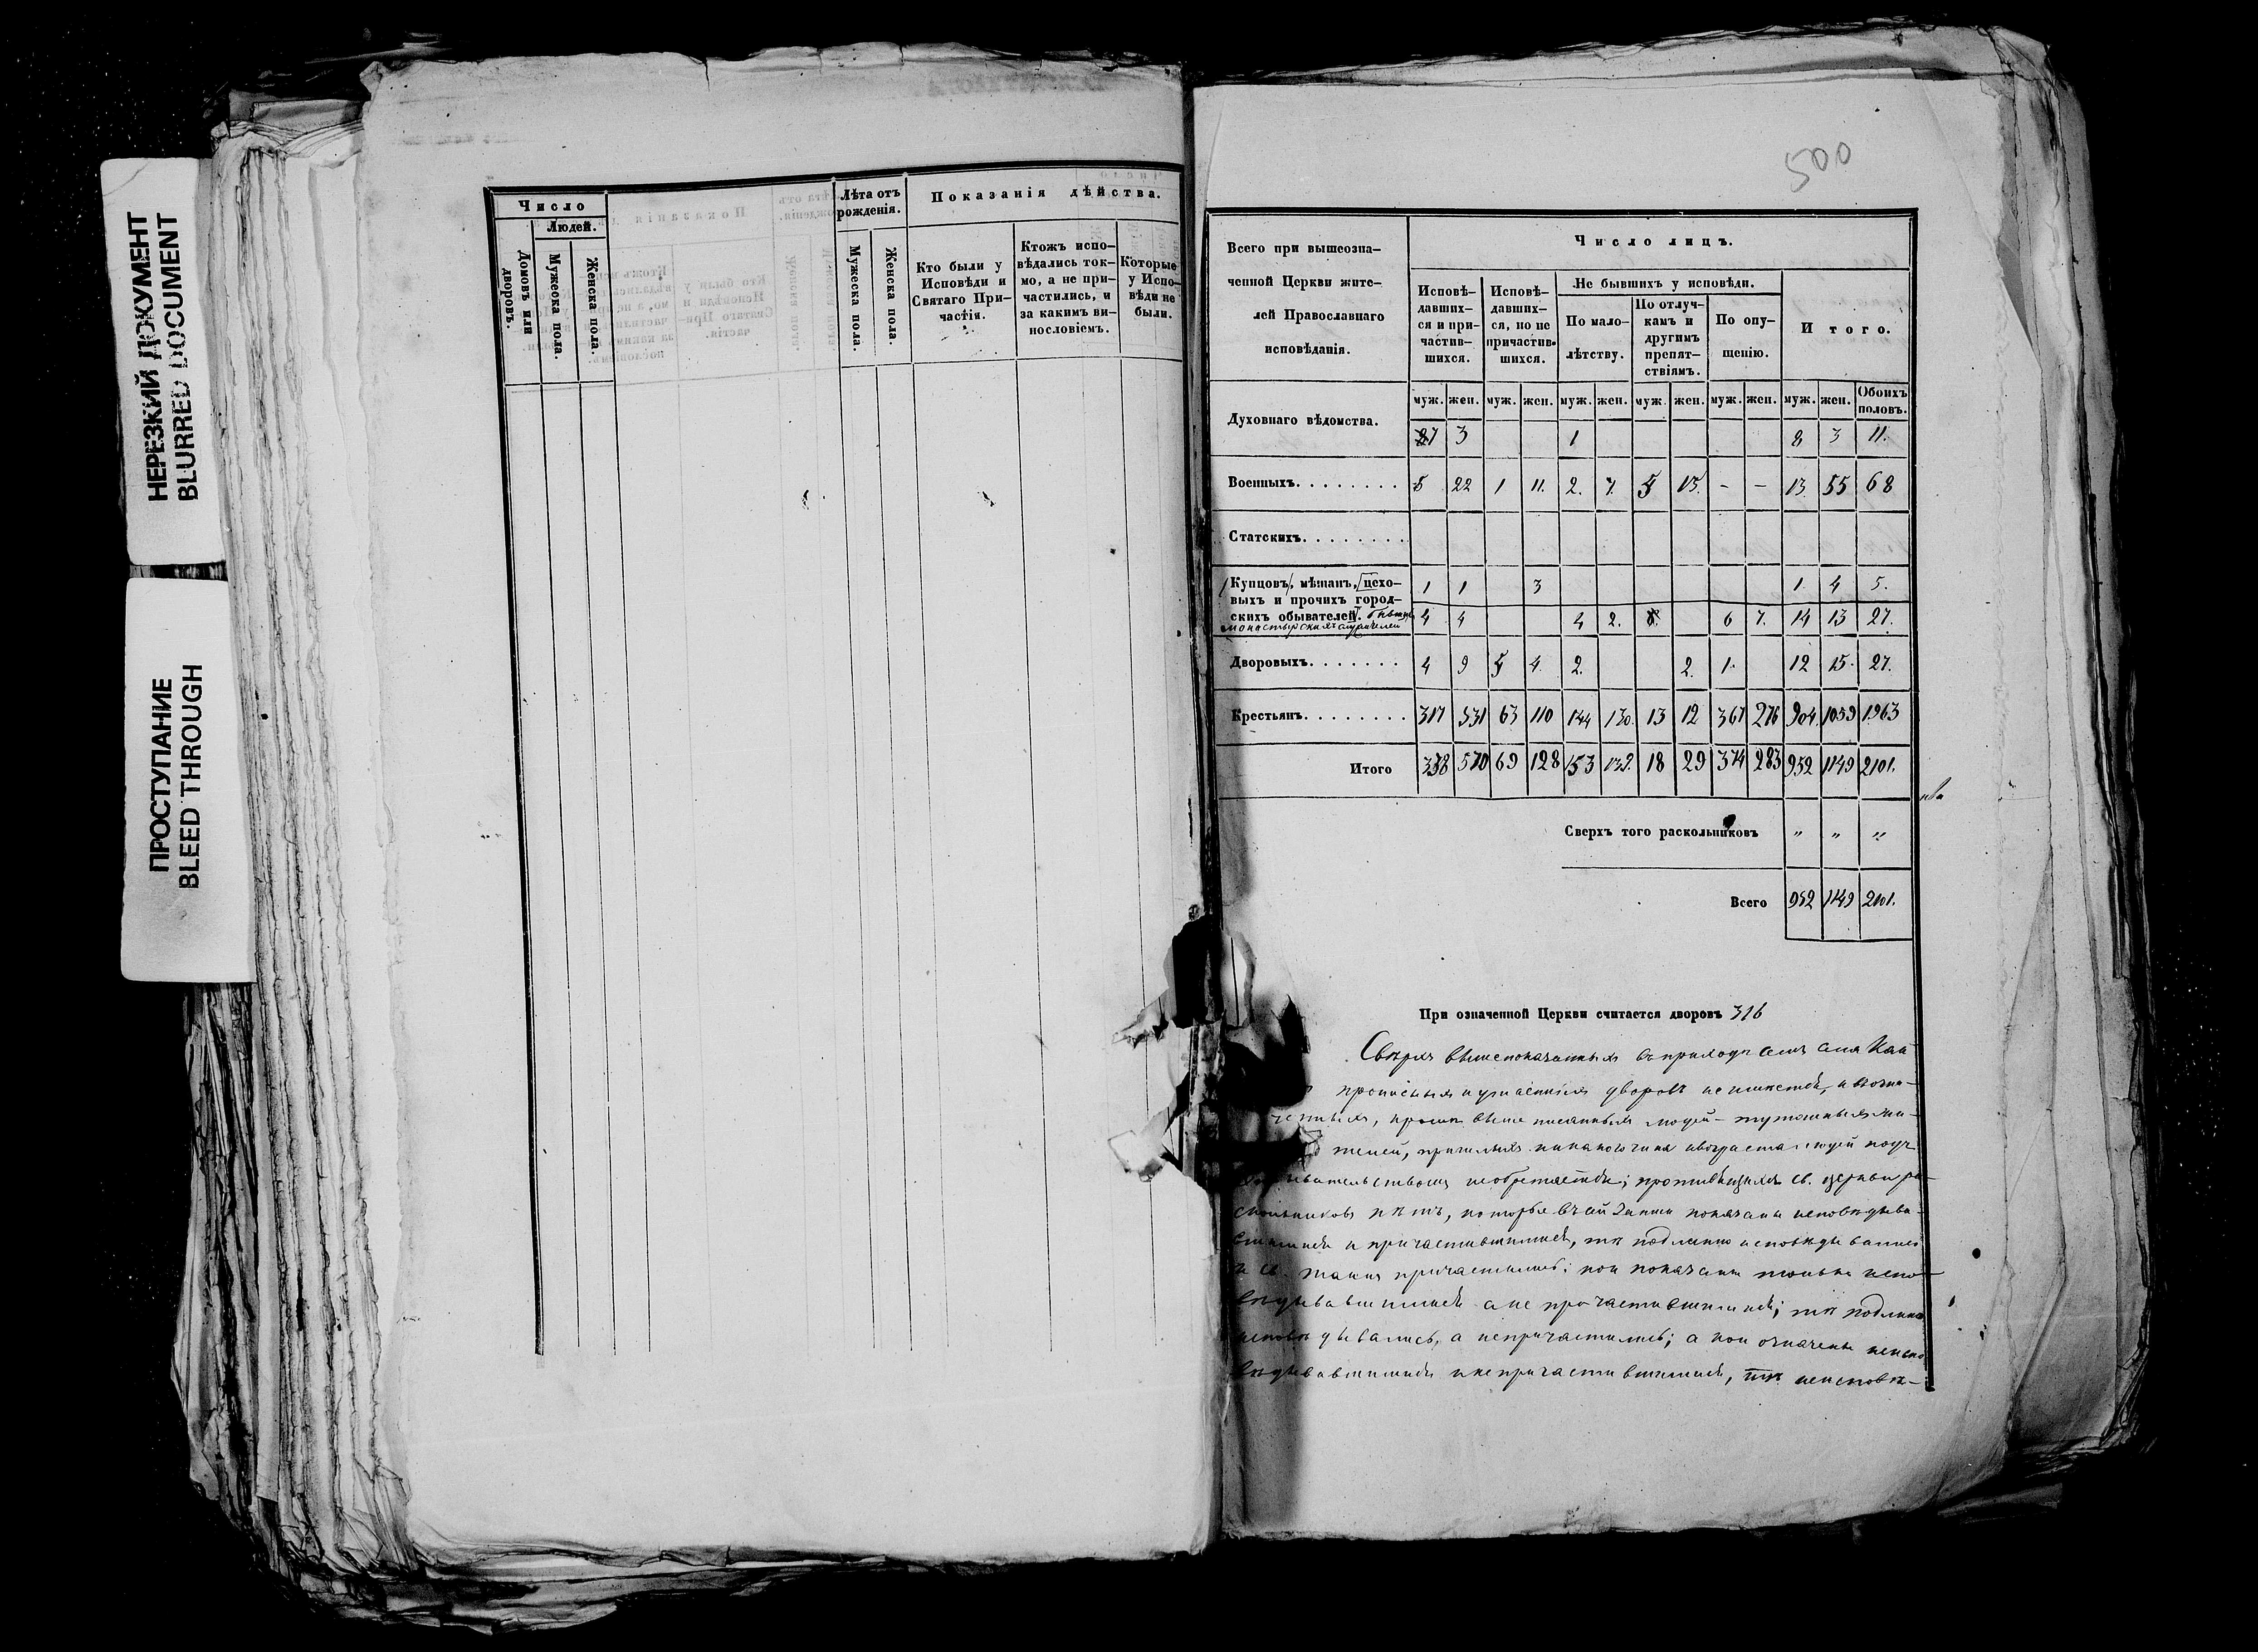 НЕРЕЗКИЙ ДОКУМЕНТ
BLURRED DOCUMENT
ПРОСТУПАНИЕ
BLEED THROUGH
Число
Людей.
Домовъ или дворовъ.
Мужеска пола.
Женска пола.
Лѣта отъ рожденія.
Мужеска пола.
Женска пола.
Показанія дѣйства.
Кто были у Исповѣди и Святаго Причастія.
Ктожъ исповѣдались токмо, а не причастились, и за какимъ винословіемъ.
Которые у Исповѣди не были.
500
Всего при вышеозначенной Церкви жителей Православнаго исповѣданія.
Число лицъ.
Исповѣдавшихся и причастившихся.
Исповѣдавшихся, но не причастившихся.
Не бывшихъ у исповѣди.
По малолѣтству.
По отлучкамъ и другимъ препятствіямъ.
По опущенію.
Итого.
муж. жен. муж. жен. муж. жен. муж. жен. муж. жен. муж. жен. Обоихъ половъ.
Духовнаго вѣдомства. 7 3 1 8 3 11.
Военныхъ. 5 22 1 11. 2. 7. 5 15. - - 13. 55 68
Статскихъ.
Купцовъ, мѣщанъ, цеховыхъ и прочихъ городскихъ обывателей. 1 1 3 1. 4 5.
бывшихъ монастырскихъ служителей 4 4 4 2. 6 7. 14 13 27.
Дворовыхъ. 4 9 5 4. 2. 2. 1. 12 15. 27.
Крестьянъ. 317 531 63 110 144 130. 13 12 367 276 904. 1059 1963
Итого 338 570 69 128 153 139. 18 29 374 283 952 1149 2101.
Сверхъ того раскольниковъ " " "
Всего 952 1149 2101.
При означенной Церкви считается дворовъ 316
Сверхъ вышепоказанныхъ въ приходѣ семъ
прописныхъ и утаенныхъ дворовъ не имѣется, и
кромѣ выше писанныхъ людей
тутошныхъ жителей, пришлыхъ никакого чина и возраста людей
необрѣтается; противящихся св. церкви
раскольниковъ нѣтъ, которые въ сей показаны исповѣдывавшимися
и причастившимися, тѣ подлинно исповѣдывались
и св. таинъ причастились; кои показаны только
исповѣдывавшимися а не причастившимися; тѣ подлинно
исповѣдывались, а непричастились; а кои означены
неисповѣдывавшимися и непричастившимися, тѣ неисповѣ-